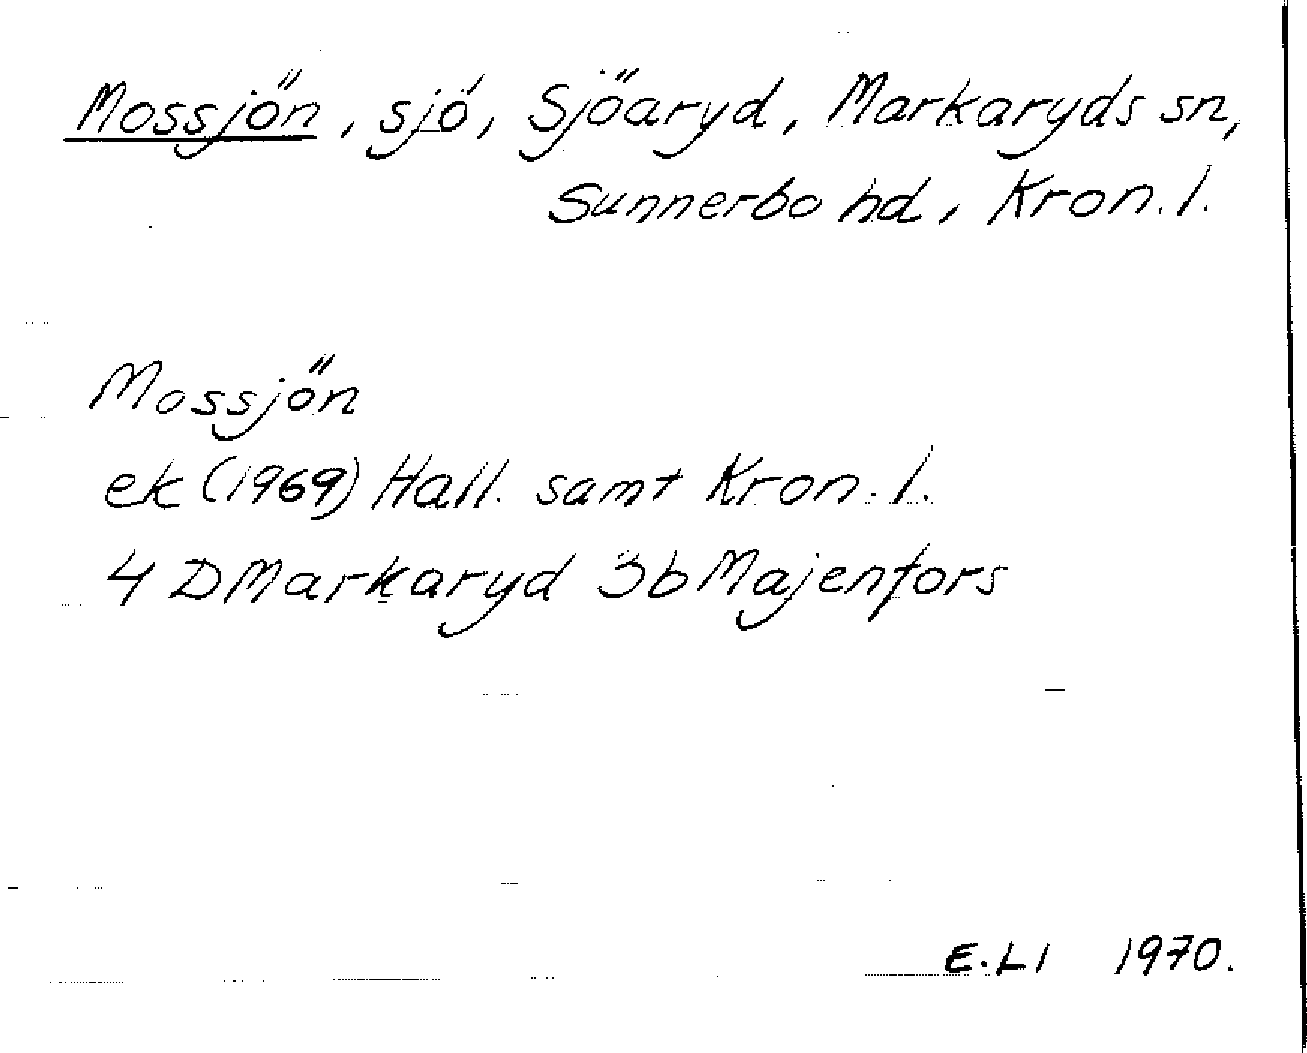 Mossjön, sjö, Sjöaryd, Markaryds sn,
Sunnerbo hd, Kron. l.
Mossjön
ek (1969) Hall. samt Kron. l.
4 D Markaryd 3b Majenfors
E. LI 1970.